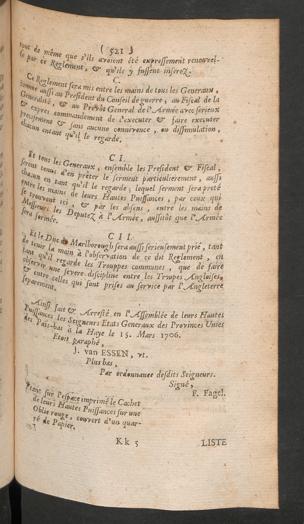 ( 521 )
tout de même que s'ils avoient été expressement renouvel-
lé par ce Reglement, & qu'ils y fussent inserez.
C.
Ce Reglement sera mis entre les mains de tous les Generaux,
comme aussi au President du Conseil de guerre, au Fiscal de la
Generalité, & au Prevôt General de l'Armée avec serieux
& exprès commandement de l'executer & faire executer
precisement & sans aucune connivence, ou dissimulation,
chacun entant qu'il le regarde.
C I.
Et tous les Generaux, ensemble les President & Fiscal,
seront tenus d'en prêter le serment particulierement, aussi
chacun en tant qu'il le regarde, lequel serment sera preté
entre les mains de leurs Hautes Puissances, par ceux qui
se trouvent ici, & par les absens, entre les mains de
Messieurs les Deputez à l'Armée, aussitôt que l'Armée
sera formée.
C I I.
Et le Duc de Marlborough sera aussi serieusement prié, tant
de tenir la main à l'observation de ce dit Reglement, en
tant qu'il regarde les Trouppes communes, que de faire
observer une severe discipline entre les Troupes Angloises,
& entre celles qui sont prises au service par l'Angleterre
separement.
Ainsi fait & Arresté en l'Assemblée de leurs Hautes
Puissances les Seigneurs Etats Generaux des Provinces Unies
des Païs-bas à la Haye le 15. Mars 1706.
Etoit paraphé,
J. van ESSEN, vt.
Plus bas,
Par ordonnance desdits Seigneurs.
Signé,
F. Fagel.
Etant sur l'espace imprimé le Cachet
de leurs Hautes Puissances sur une
Oblie rouge, couvert d'un quar-
ré de Papier.
K k 5 LISTE